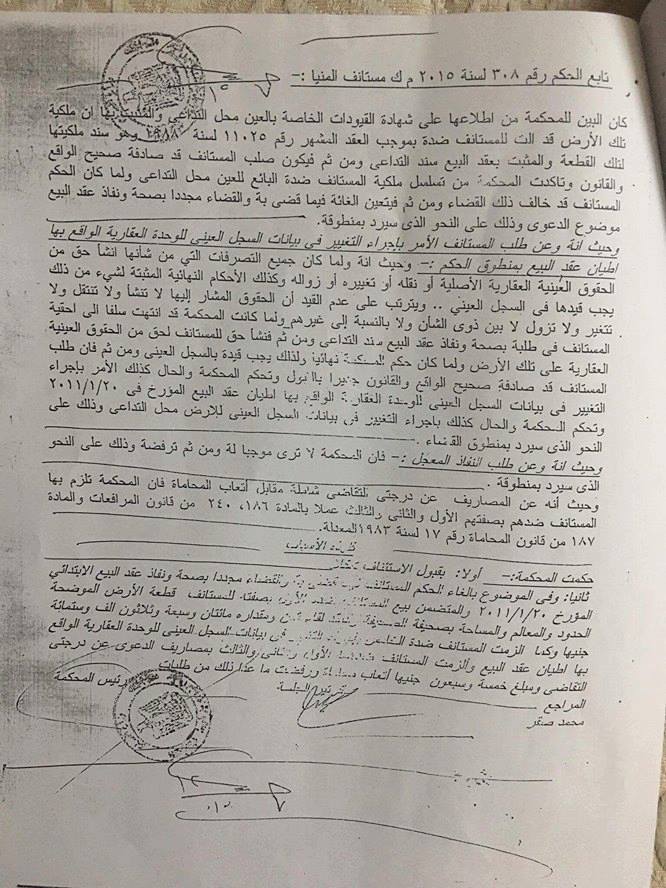 تابع الحكم رقم ٣٠٨ لسنة ٢٠١٥ م ك مستانف المنيا :-
كان البين للمحكمة من اطلاعها على شهادة القيودات الخاصة بالعين محل التداعى والمثبت بها ان ملكية
تلك الأرض قد الت للمستانف ضدة بموجب العقد المشهر رقم ١١٠٢٥ لسنة وهو سند ملكيتها
لتلك القطعة والمثبت بعقد البيع سند التداعى ومن ثم فيكون صلب المستانف قد صادفة صحيح الواقع
والقانون وتاكدت المحكمة من تسلسل ملكية المستانف ضدة البائع للعين محل التداعى ولما كان الحكم
المستانف قد خالف ذلك القضاء ومن ثم فيتعين الغائة فيما قضى بة والقضاء مجددا بصحة ونفاذ عقد البيع
موضوع الدعوى وذلك على النحو الذى سيرد بمنطوقة.
وحيث انة وعن طلب المستانف الأمر بإجراء التغيير فى بيانات السجل العينى للوحدة العقارية الواقع بها
اطيان عقد البيع بمنطوق الحكم :- وحيث انة ولما كان جميع التصرفات التي من شأنها انشأ حق من
الحقوق العينية العقارية الأصلية أو نقله أو تغييره أو زواله وكذلك الأحكام النهائية المثبتة لشيء من ذلك
يجب قيدها فى السجل العيني .. ويترتب على عدم القيد أن الحقوق المشار إليها لا تنشأ ولا تنتقل ولا
تتغير ولا تزول لا بين ذوى الشأن ولا بالنسبة إلى غيرهم ولما كانت المحكمة قد انتهت سلفا الى احقية
المستانف فى طلبة بصحة ونفاذ عقد البيع سند التداعى ومن ثم فنشأ حق للمستانف لحق من الحقوق العينية
العقارية على تلك الأرض ولما كان حكم المحكمة نهائيا ولذلك يجب قيدة بالسجل العينى ومن ثم فان طلب
المستانف قد صادفة صحيح الواقع والقانون جديرا بالقبول وتحكم المحكمة والحال كذلك الأمر بإجراء
التغيير فى بيانات السجل العينى للوحدة العقارية الواقع بها اطيان عقد البيع المؤرخ فى ٢٠١١/١/٢٠
وتحكم المحكمة والحال كذلك باجراء التغيير فى بيانات السجل العينى للارض محل التداعى وذلك على
النحو الذى سيرد بمنطوق القضاء .
وحيث انة وعن طلب النفاذ المعجل :- فان المحكمة لا ترى موجبا لة ومن ثم ترفضة وذلك على النحو
الذى سيرد بمنطوقة .
وحيث أنه عن المصاريف عن درجتى التقاضى شاملة مقابل أتعاب المحاماة فان المحكمة تلزم بها
المستانف ضدهم بصفتهم الأول والثانى والثالث عملا بالمادة ١٨٦، ٢٤٠ من قانون المرافعات والمادة
١٨٧ من قانون المحاماة رقم ١٧ لسنة ١٩٨٣المعدلة.
فلهذه الأسباب
حكمت المحكمة:- أولا: بقبول الاستئناف شكلا
ثانيا: وفى الموضوع بالغاء الحكم المستانف والقضاء مجددا بصحة ونفاذ عقد البيع الابتدائي
المؤرخ ٢٠١١/١/٢٠ والمتضمن بيع المستانف ضده الأول بصفته للمستانف قطعة الأرض الموضحة
الحدود والمعالم والمساحة بصحيفة ومقداره مائتان وسبعة وثلاثون الف وستمائة
جنيها وكما الزمت المستانف ضدة فى بيانات السجل العينى للوحدة العقارية الواقع
بها اطيان عقد البيع والزمت المستانف الأول والثانى والثالث بمصاريف الدعوى عن درجتى
التقاضى ومبلغ خمسة وسبعون جنيها أتعاب محاماة ورفضت ما عدا ذلك من طلبات
المراجع الجلسة رئيس المحكمة
محمد صقر